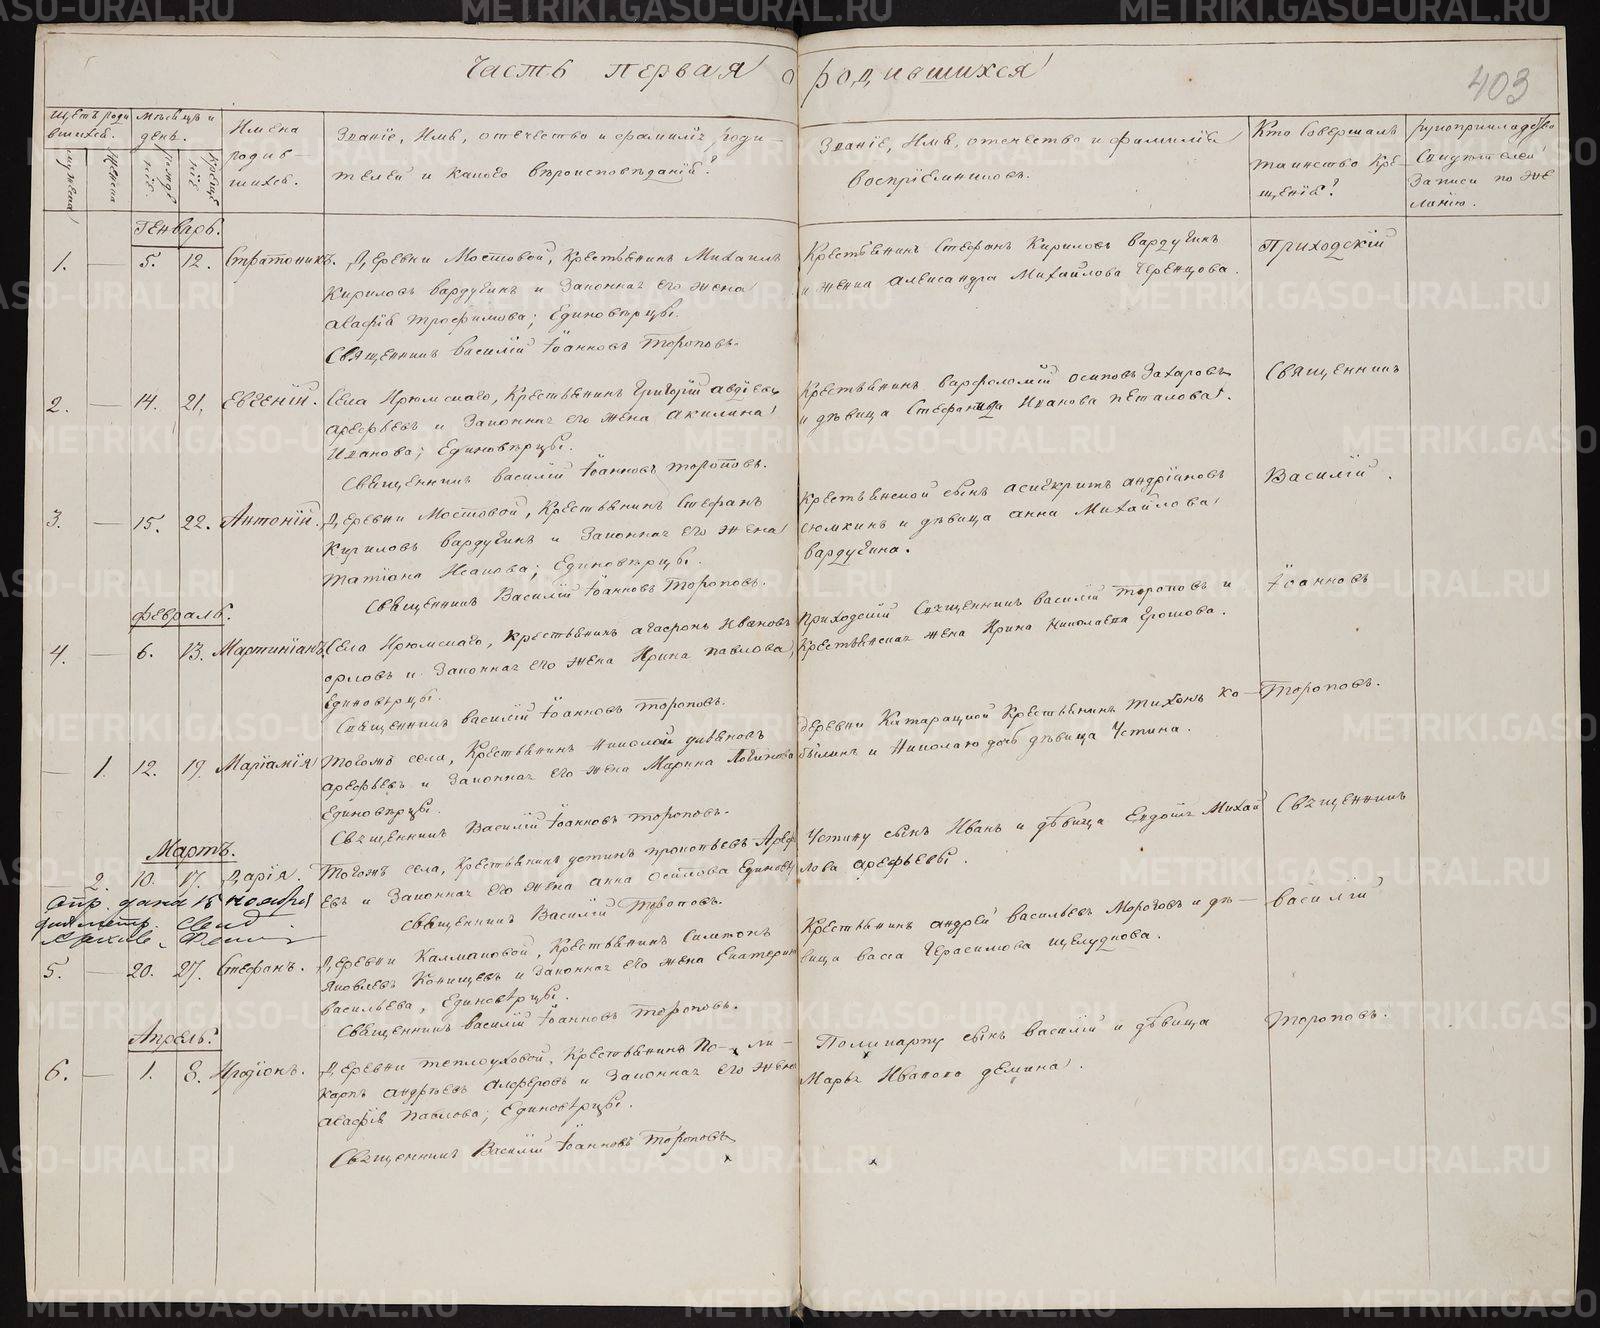 Часть первая о родившихся
403
Щетъ роди
вшихся.
мужеска
Женска
Мѣсяцъ и
день.
рожде
нія.
креще
нія.
Имена
родив-
шихся.
Званіе, Имя, отечество и фамилія, роди-
телей и какого вѣроисповѣданія?
Званіе, Имя, отечество и фамилія
воспріемниковъ.
Кто Совершалъ
таинство Кре-
щенія?
рукоприкладство
Свидѣтелей
Записи по же
ланію.
Генварь.
1. — 5. 12. Стратоникъ.
Деревни Мостовой, Крестьянинъ Михаилъ
Кириловъ Вардугинъ и Законная его жена
Агафія Трофимова; Единовѣрцы.
Священникъ Василій Іоанновъ Тороповъ.
Крестьянинъ Стефанъ Кириловъ Вардугинъ
и жена Александра Михайлова Черенцова.
Приходскій
2. — 14. 21. Евгеній.
Села Ирюмскаго, Крестьянинъ Григорій Авдіевъ
Арефьевъ и Законная его жена Акилина
Иванова; Единовѣрцы.
Священникъ Василій Іоанновъ Тороповъ.
Крестьянинъ Варфоломій Осиповъ Захаровъ
и дѣвица Стефанида Иванова Петалова.
Священникъ
3. — 15. 22. Антоній.
Деревни Мостовой, Крестьянинъ Стефанъ
Кириловъ Вардугинъ и Законная его жена
Татіана Исакова; Единовѣрцы.
Священникъ Василій Іоанновъ Тороповъ.
Крестьянской сынъ Асигкритъ Андріановъ
Сюмкинъ и дѣвица Анна Михайлова
Вардугина.
Василій.
Февраль.
4. — 6. 13. Мартиніанъ.
Села Ирюмскаго, Крестьянинъ Агафонъ Ивановъ
Орловъ и Законная его жена Ирина Павлова,
Единовѣрцы.
Священникъ Василій Іоанновъ Тороповъ.
Приходскій Священникъ Василій Тороповъ и
Крестьянская жена Ирина Николаева Ершова.
Іоанновъ
— 1. 12. 19. Маріамія
Тогожъ села, Крестьянинъ Николай
Арефьевъ и Законная его жена Марина Логинова
Единовѣрцы.
Священникъ Василій Іоанновъ Тороповъ.
Деревни Катарацкой Крестьянинъ Тихонъ Ко-
былинъ и Николаю дочь дѣвица Устина.
Тороповъ.
Мартъ.
— 2. 10. 17. Дарія.
Тогожъ села, Крестьянинъ Устинъ Прокопьевъ Арефь
евъ и Законная его жена Анна Осипова Единовѣр
Священникъ Василій Тороповъ.
Устину сынъ Иванъ и дѣвица Евдокія Михай
лова Арефьевы.
Священникъ
Спр. дана 15 ноября
5. — 20. 27. Стефанъ.
Деревни Калмаковой, Крестьянинъ Симеонъ
Яковлевъ Конищевъ и Законная его жена Екатерина
Васильева, Единовѣрцы.
Священникъ Василій Іоанновъ Тороповъ.
Крестьянинъ Андрей Васильевъ Мороговъ и дѣ-
вица Васса Герасимова Щелудкова.
Василій
Апрель.
6. — 1. 8. Иродіонъ.
Деревни Теплоуховой, Крестьянинъ По- ли-
карпъ Андрѣевъ Алферовъ и Законная его жена
Агафія Павлова; Единовѣрцы.
Священникъ Василій Іоанновъ Тороповъ
Поликарпу сынъ Василій и дѣвица
Марья Иванова Демина.
Тороповъ.